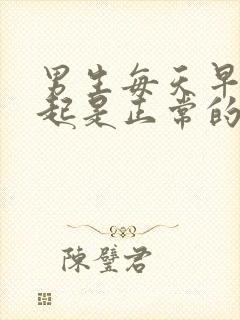 男生每天早
起是正常的
陳璧君